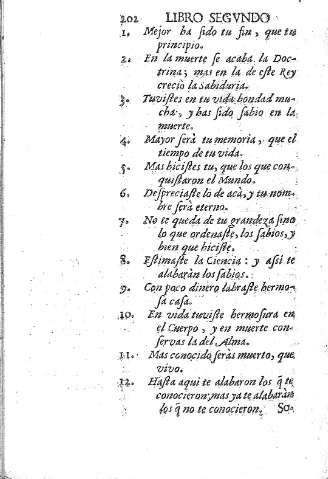 202 LIBRO SEGVNDO
1. Mejor ha sido tu fin, que tu
principio.
2. En la muerte se acaba la Doc-
trina; mas en la de este Rey
creciò la Sabiduria.
3. Tuvistes en tu vida bondad mu-
cha, y has sido sabio en la
muerte.
4. Mayor serà tu memoria, que el
tiempo de tu vida.
5. Mas hicistes tu, que los que con-
quistaron el Mundo.
6. Despreciaste lo de acà, y tu nom-
bre serà eterno.
7. No te queda de tu grandeza sino
lo que ordenaste, los sabios, y
bien que hiciste.
8. Estimaste la Ciencia: y assi te
alabaràn los sabios.
9. Con poco dinero labraste hermo-
sa casa.
10. En vida tuviste hermosura en
el Cuerpo, y en muerte con-
servas la del Alma.
11. Mas conocido seràs muerto, que
vivo.
12. Hasta aqui te alabaron los q̃ te
conocieron; mas ya te alabaràn
los q̃ no te conocieron.